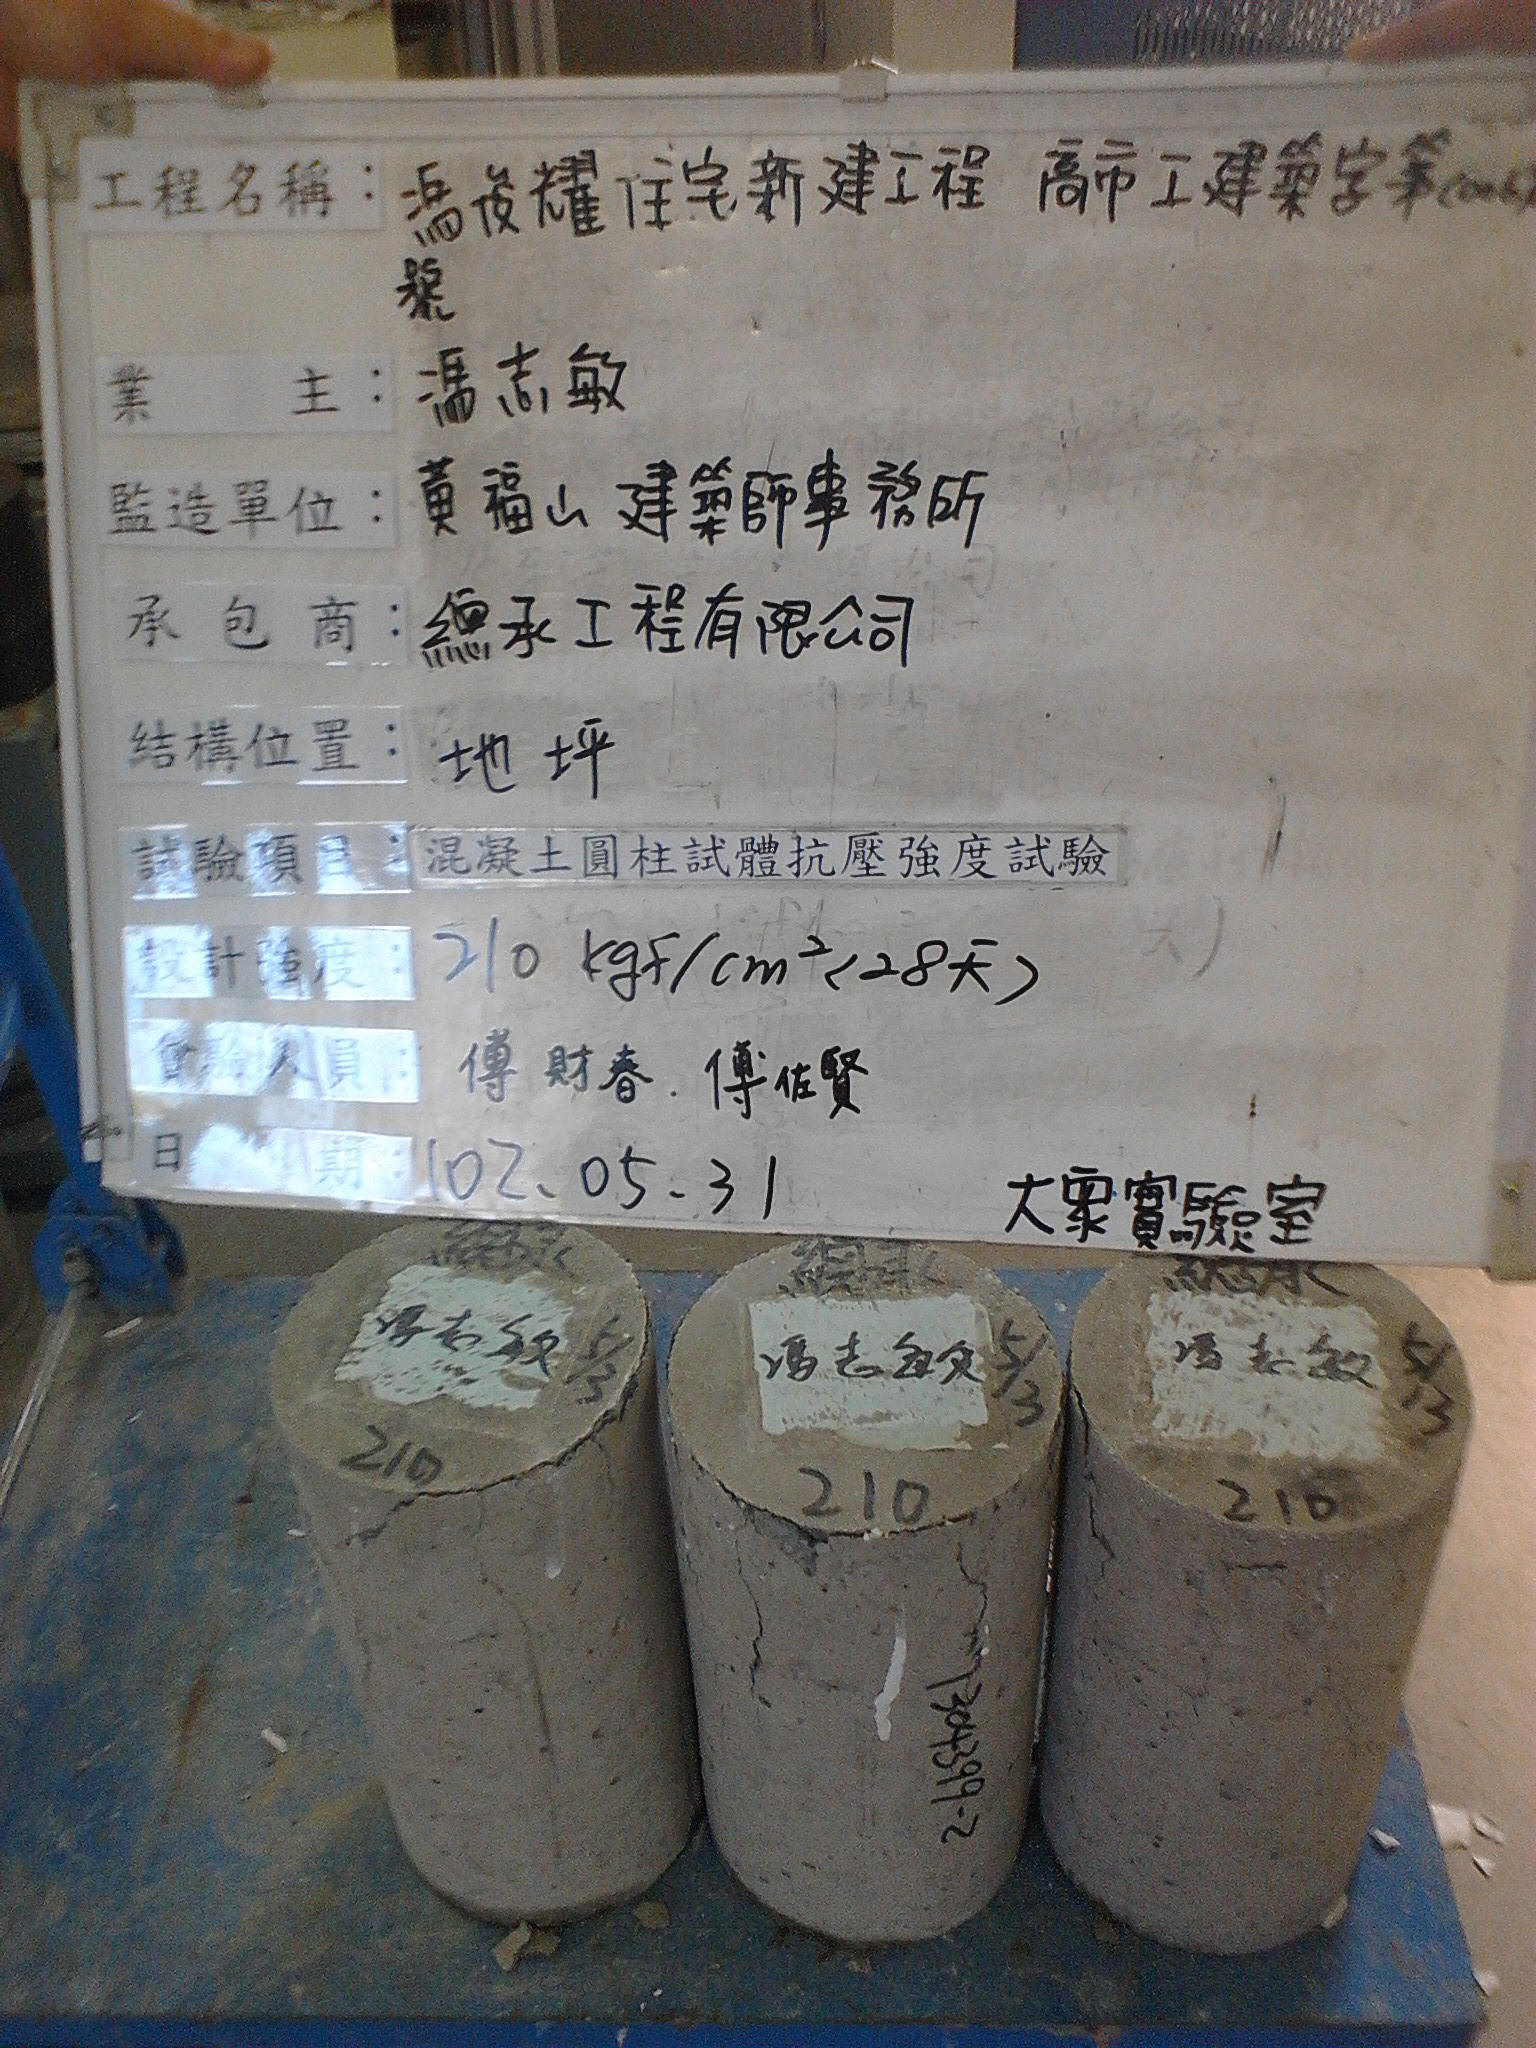 工程名稱：馮俊耀住宅新建工程 高市工建築字第
號
業主：馮志敏
監造單位：黃福山建築師事務所
承包商：總承工程有限公司
結構位置：地坪
試驗項目：混凝土圓柱試體抗壓強度試驗
設計強度：210 kgf/cm²(28天)
會驗人員：傅財春.傅佐賢
日期：102.05.31
大眾實驗室
總承
馮志敏 5/3
210
總承
馮志敏 5/3
210
總承
馮志敏 5/3
210